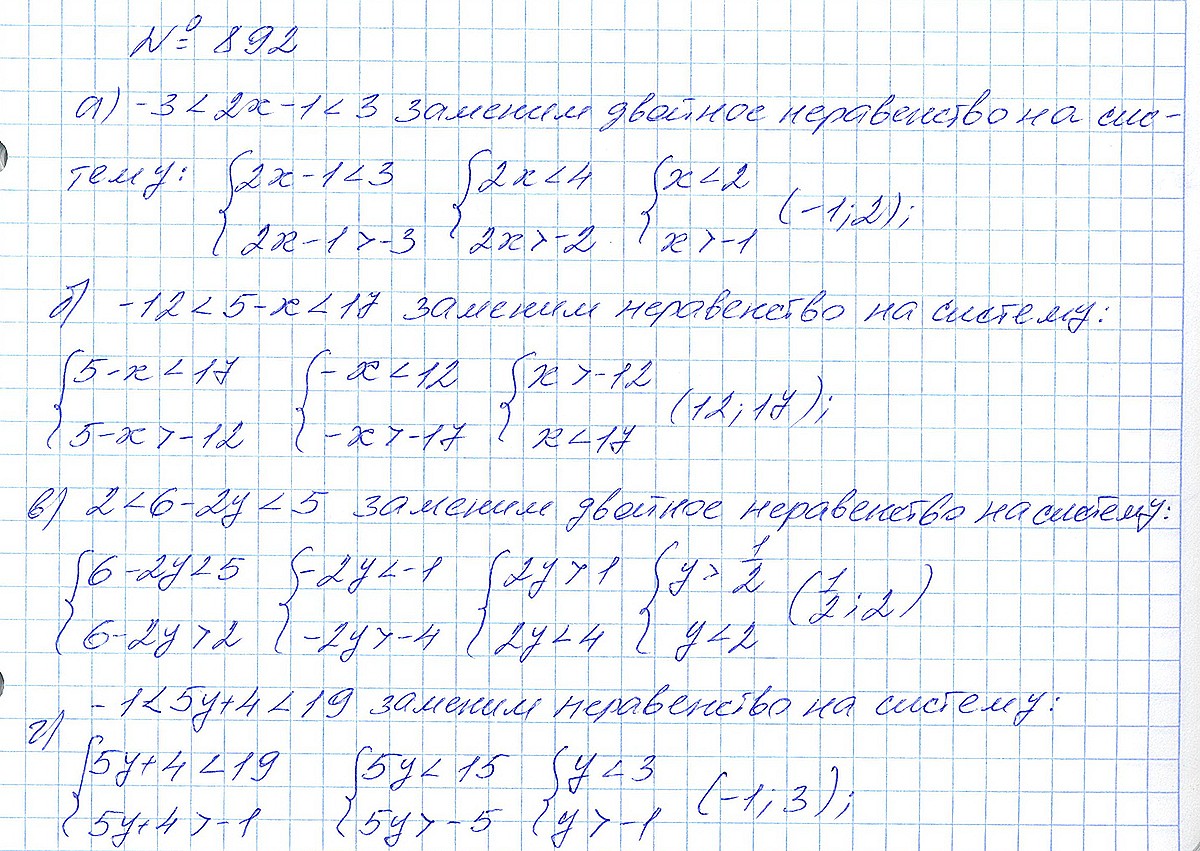 № 892
а) -3 < 2x - 1 < 3 заменим двойное неравенство на сис-
тему: { 2x - 1 < 3 { 2x < 4 { x < 2 (-1; 2);
2x - 1 > -3 2x > -2 x > -1
б) -12 < 5 - x < 17 заменим неравенство на систему:
{ 5 - x < 17 { -x < 12 { x > -12 (12; 17);
5 - x > -12 -x > -17 x < 17
в) 2 < 6 - 2y < 5 заменим двойное неравенство на систему:
{ 6 - 2y < 5 { -2y < -1 { 2y > 1 { y > 1/2 (1/2; 2)
6 - 2y > 2 -2y > -4 2y < 4 y < 2
г) -1 < 5y + 4 < 19 заменим неравенство на систему:
{ 5y + 4 < 19 { 5y < 15 { y < 3 (-1; 3);
5y + 4 > -1 5y > -5 y > -1